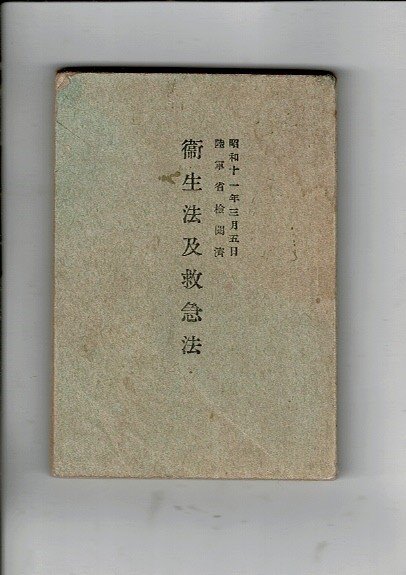 昭和十一年三月五日
陸軍省検閲済
衞生法及救急法